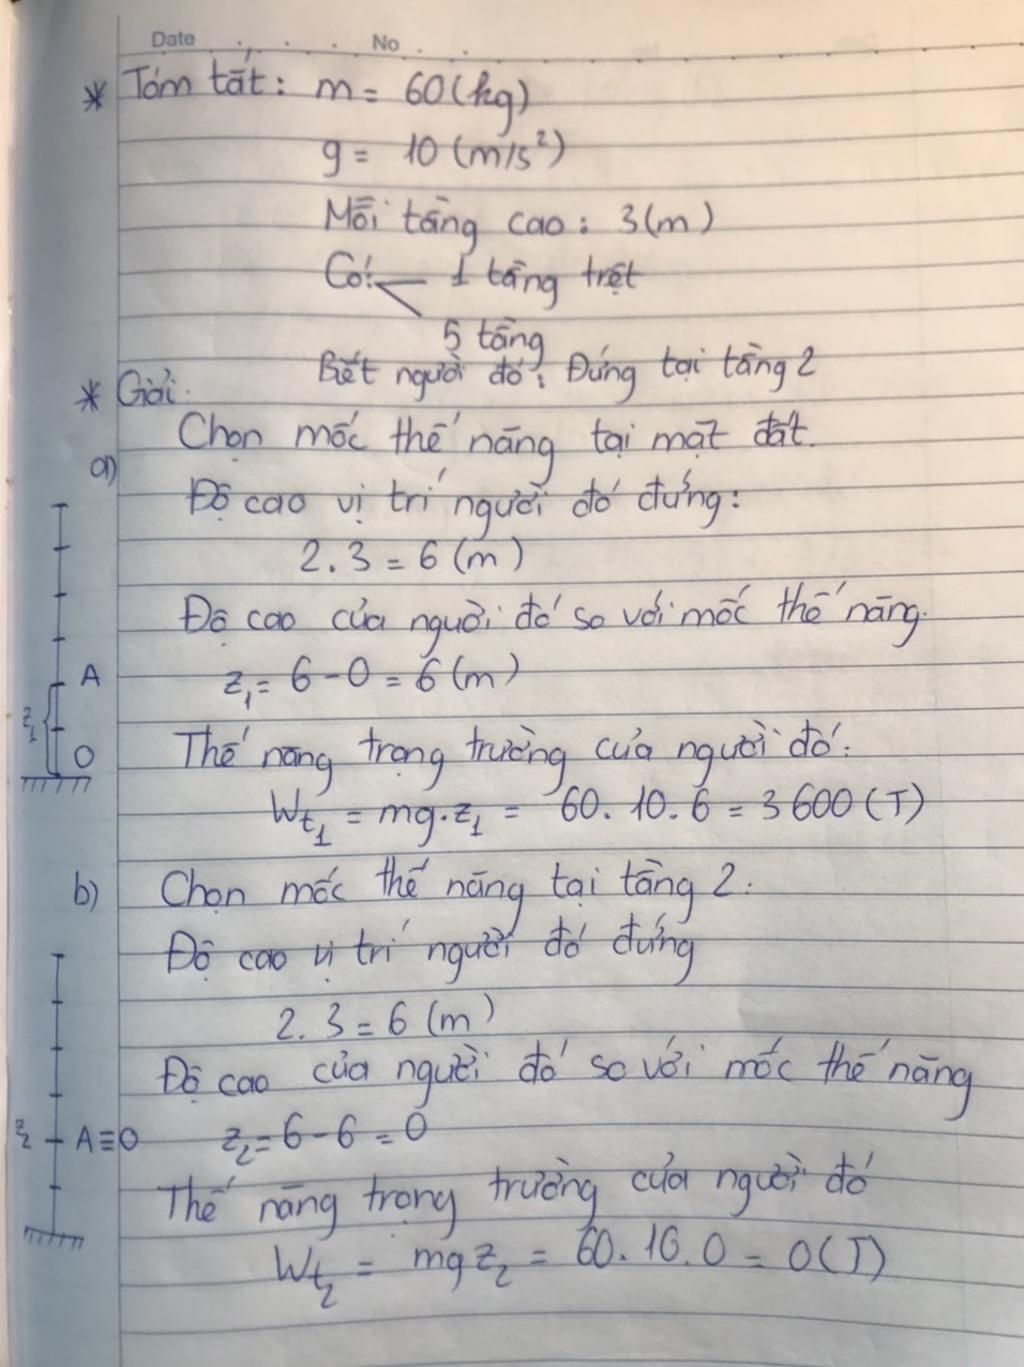 Date No
* Tóm tắt: m = 60 (kg)
g = 10 (m/s²)
Mỗi tầng cao: 3 (m)
Có: 1 tầng trệt
5 tầng
Biết người đó: Đứng tại tầng 2
* Giải:
Chọn mốc thế năng tại mặt đất.
a)
Độ cao vị trí người đó đứng:
2.3 = 6 (m)
Độ cao của người đó so với mốc thế năng.
A
z₁ = 6 - 0 = 6 (m)
z₁
O
Thế năng trọng trường của người đó:
Wt₁ = mg.z₁ = 60. 10. 6 = 3 600 (J)
b) Chọn mốc thế năng tại tầng 2.
Độ cao vị trí người đó đứng
2.3 = 6 (m)
Độ cao của người đó so với mốc thế năng
z₂ A≡O z₂ = 6 - 6 = 0
Thế năng trọng trường của người đó
Wt₂ = mg z₂ = 60. 10. 0 = 0 (J)